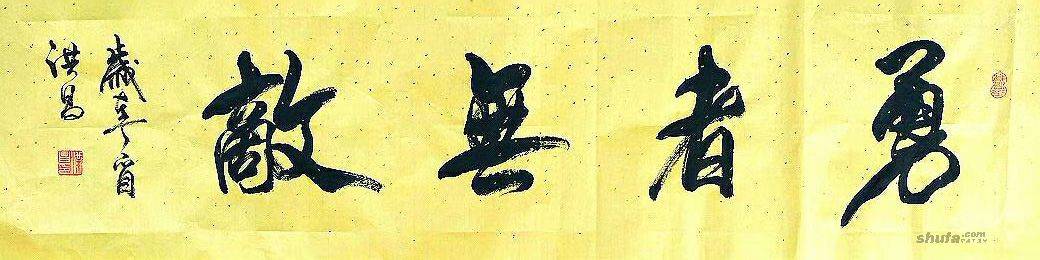 勇者無敵
歲春
洪昌
shufa.com